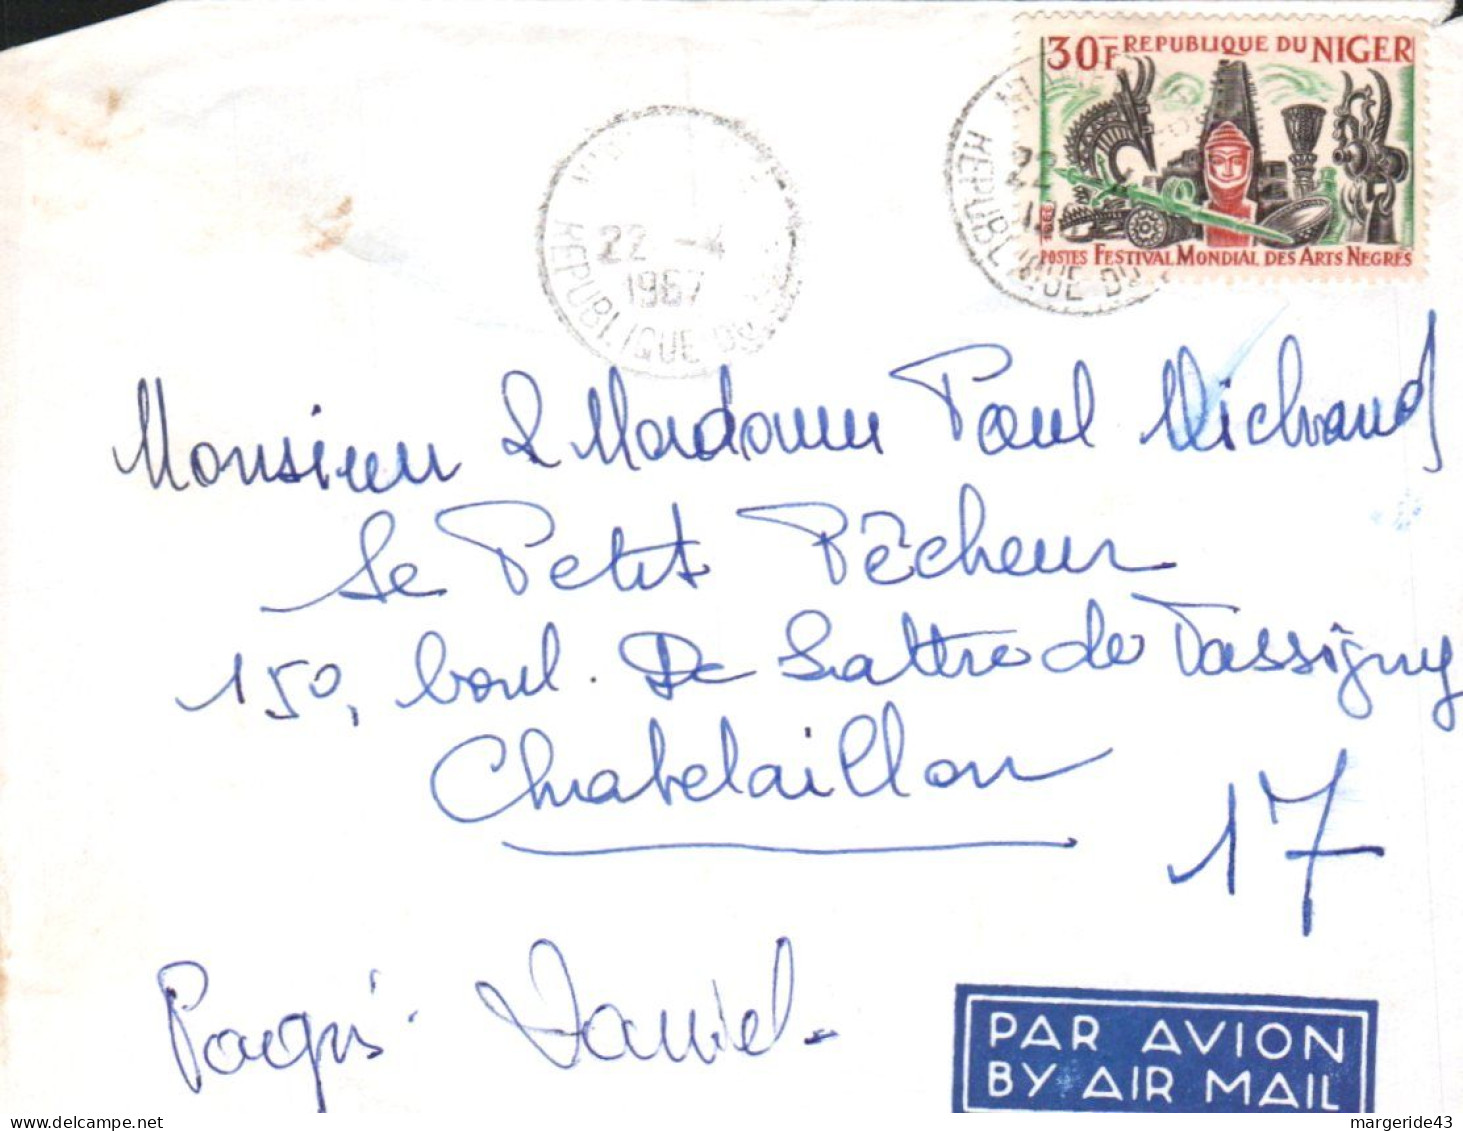 30F REPUBLIQUE DU NIGER
POSTES FESTIVAL MONDIAL DES ARTS NEGRES
22 -4
1967
REPUBLIQUE DU
22
REPUBLIQUE DU
Monsieur & Madame Paul Michaud
Le Petit Pêcheur
150, boul. De Lattre de Tassigny
Chatelaillon
17
Daniel
PAR AVION
BY AIR MAIL
www.delcampe.net
margeride43